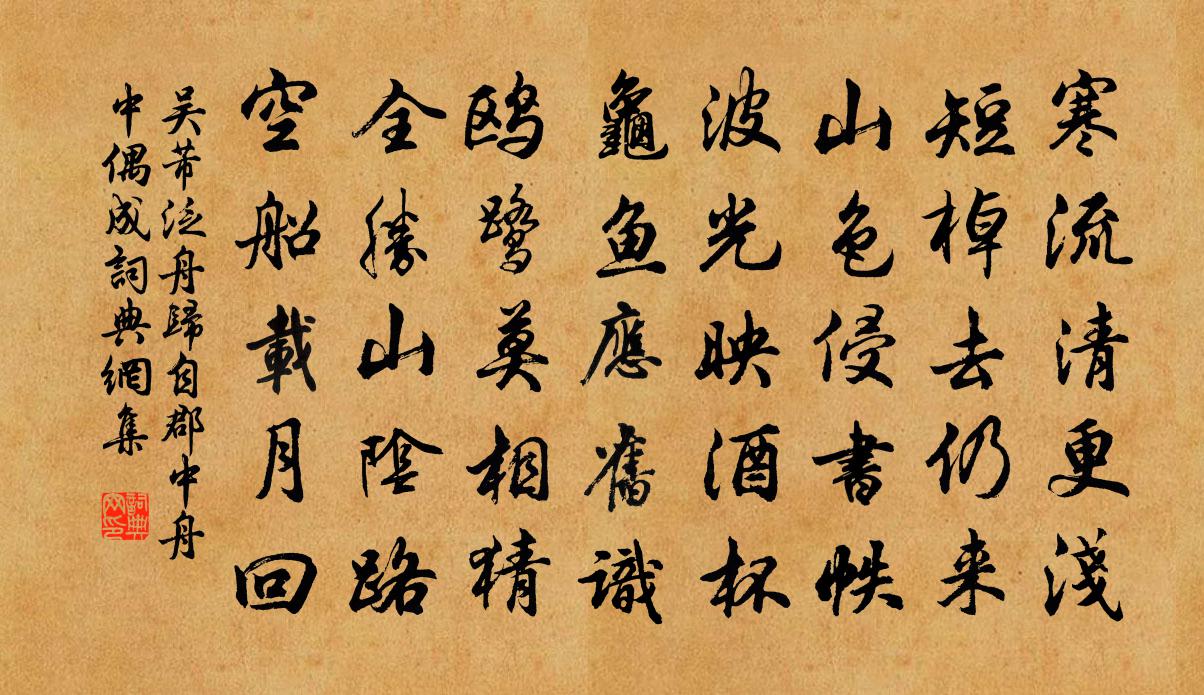 寒流清更淺
短棹去仍来
山色侵書帙
波光映酒杯
龜魚應舊識
鸥鹭莫相猜
全勝山陰路
空船載月回
吴芾泛舟歸自郡中舟
中偶成詞典網集
詞典
网印